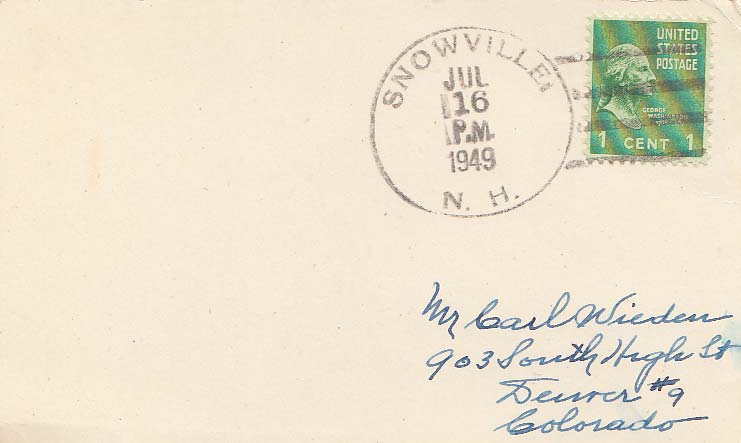 SNOWVILLE
JUL
16
P.M.
1949
N. H.
UNITED
STATES
POSTAGE
GEORGE
WASHINGTON
1 CENT 1
Mr Carl Wieden
903 South High St
Denver #9
Colorado